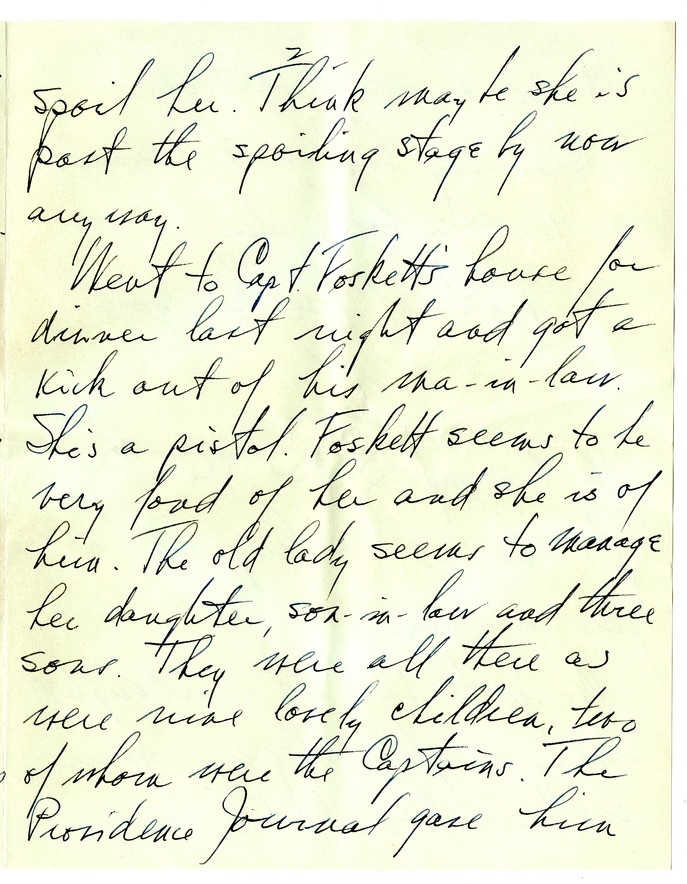 2
spoil her. Think maybe she is
past the spoiling stage by now
anyway.
Went to Capt. Foskett's house for
dinner last night and got a
kick out of his ma-in-law.
She's a pistol. Foskett seems to be
very fond of her and she is of
him. The old lady seems to manage
her daughter, son-in-law and three
sons. They were all there as
were nine lovely children, two
of whom were the Captains. The
Providence Journal gave him